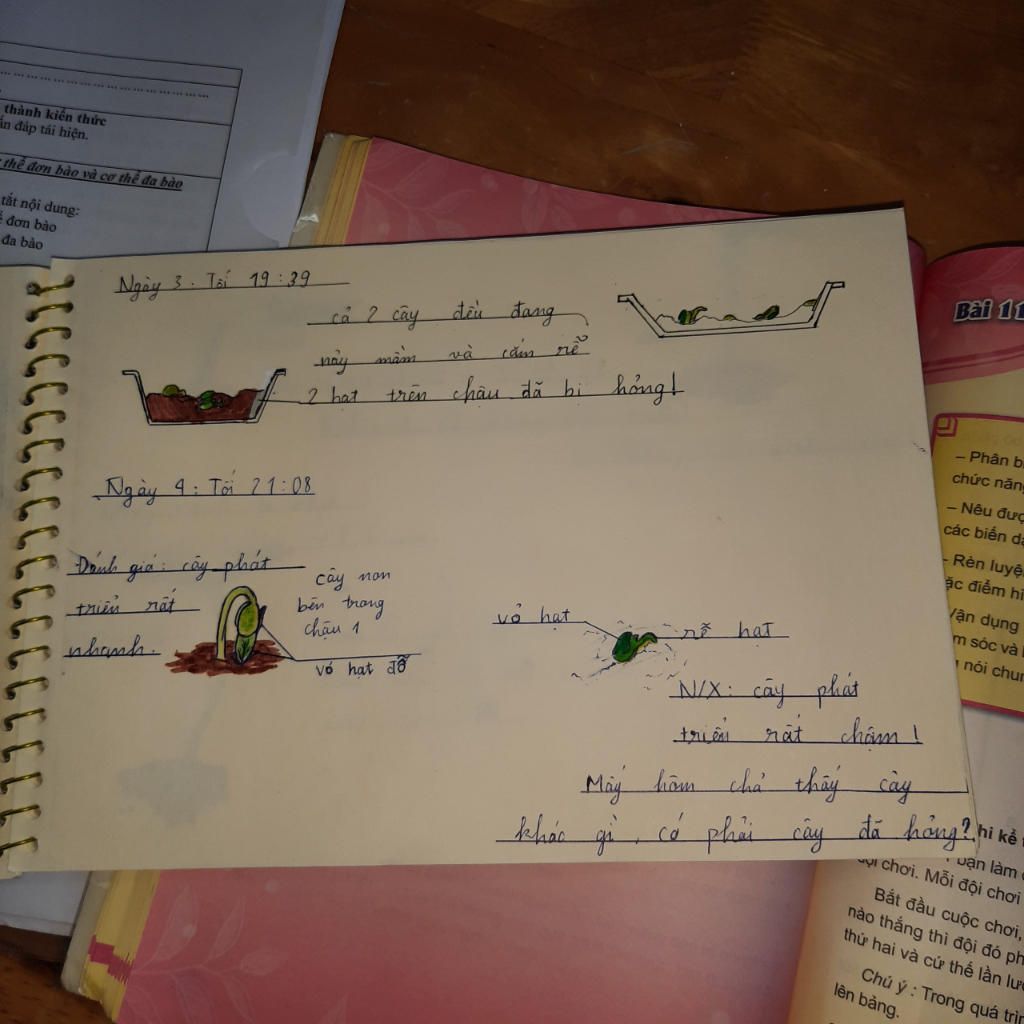 thành kiến thức
ấn đáp tái hiện.
thể đơn bào và cơ thể đa bào
tắt nội dung:
đơn bào
đa bào
Ngày 3. Tối 19:39
cả 2 cây đều đang
nảy mầm và cắm rễ
2 hạt trên chậu đã bị hỏng!
Ngày 4: Tối 21:08
Đánh giá: cây phát
triển rất
nhanh.
cây non
bên trong
chậu 1
vỏ hạt đỗ
vỏ hạt
rễ hạt
N/X: cây phát
triển rất chậm!
Mấy hôm chả thấy cây
khác gì, có phải cây đã hỏng?
Bài 11
– Phân b
chức năng
– Nêu đượ
các biến d
- Rèn luyệ
ặc điểm hì
Vận dụng
m sóc và
nói chun
hi kể
bạn làm
ội chơi. Mỗi đội chơi
Bắt đầu cuộc chơi,
nào thắng thì đội đó ph
thứ hai và cứ thế lần lượ
Chú ý : Trong quá trìn
lên bảng.